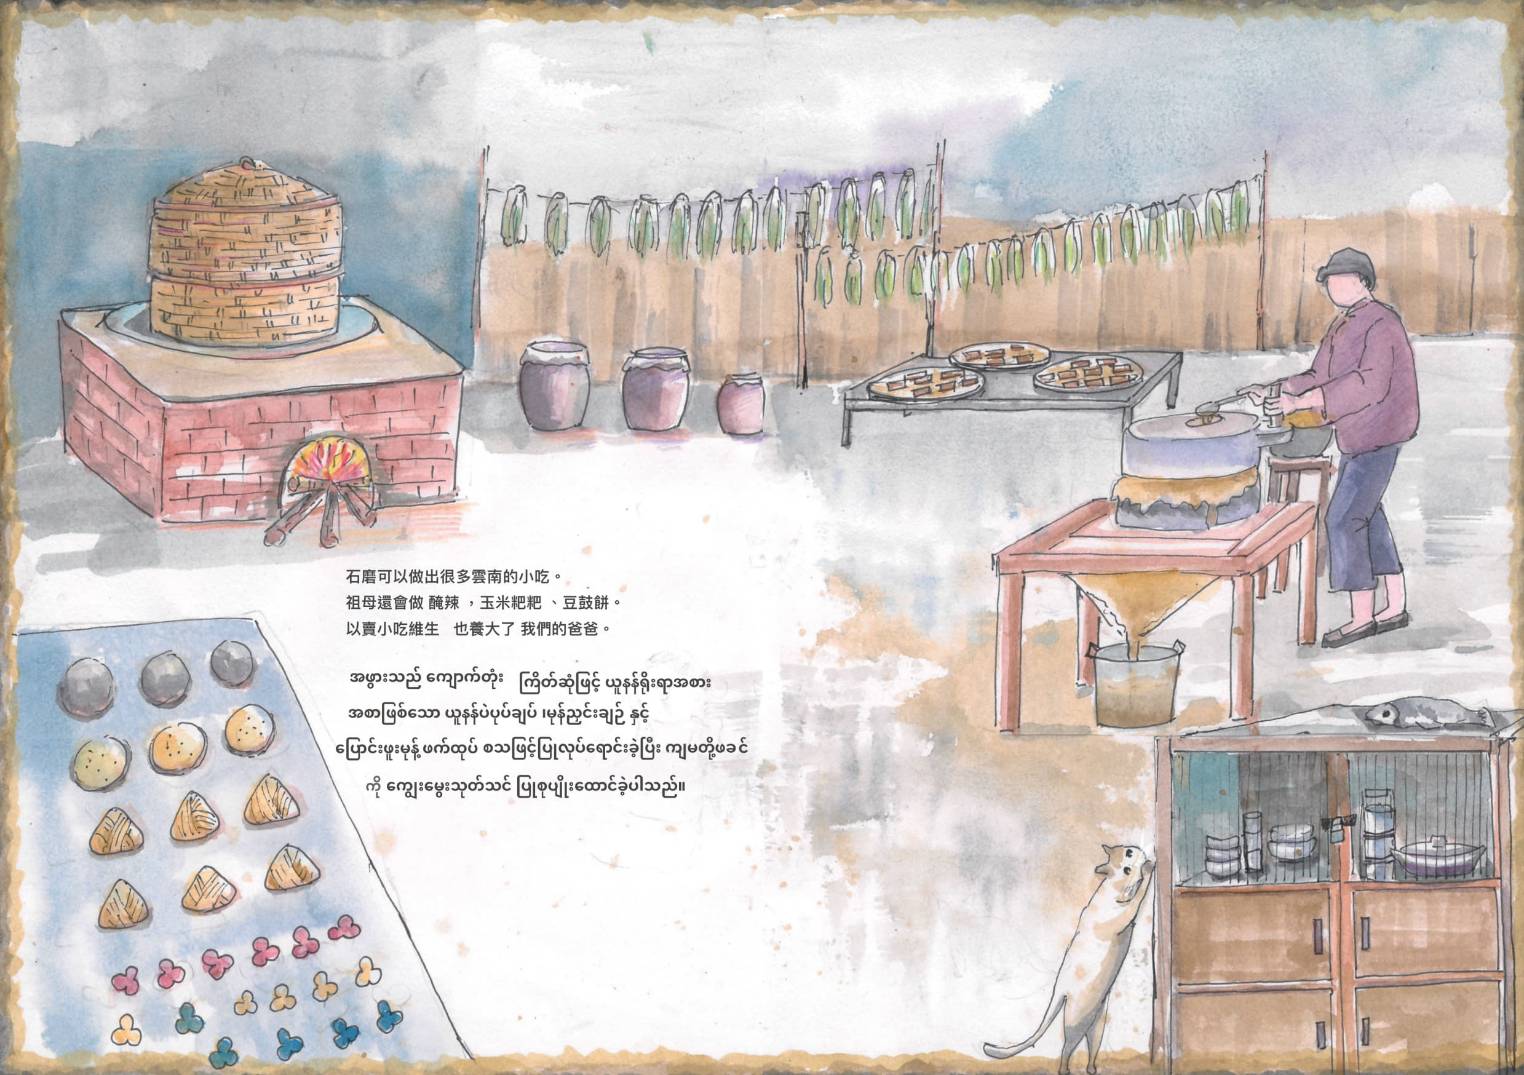 石磨可以做出很多雲南的小吃。
祖母還會做 醃辣 ，玉米粑粑 、豆鼓餅。
以賣小吃維生 也養大了 我們的爸爸。
အဖွားသည် ကျောက်တုံး ကြိတ်ဆုံဖြင့် ယူနန်ရိုးရာအစား
အစာဖြစ်သော ယူနန်ပဲပုပ်ချပ် ၊မုန်ညှင်းချဉ် နှင့်
ပြောင်းဖူးမုန့် ဖက်ထုပ် စသဖြင့်ပြုလုပ်ရောင်းခဲ့ပြီး ကျမတို့ဖခင်
ကို ကျွေးမွေးသုတ်သင် ပြုစုပျိုးထောင်ခဲ့ပါသည်။